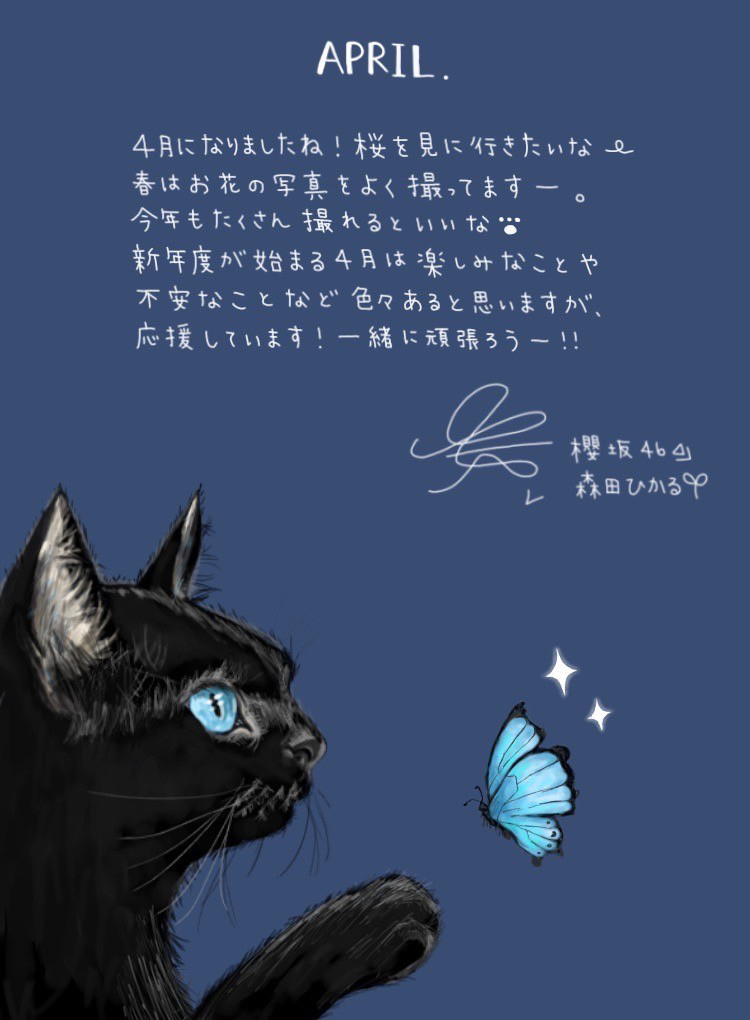 APRIL.
4月になりましたね！桜を見に行きたいな
春はお花の写真をよく撮ってますー。
今年もたくさん撮れるといいな
新年度が始まる4月は楽しみなことや
不安なことなど色々あると思いますが、
応援しています！一緒に頑張ろうー!!
櫻坂46
森田ひかる